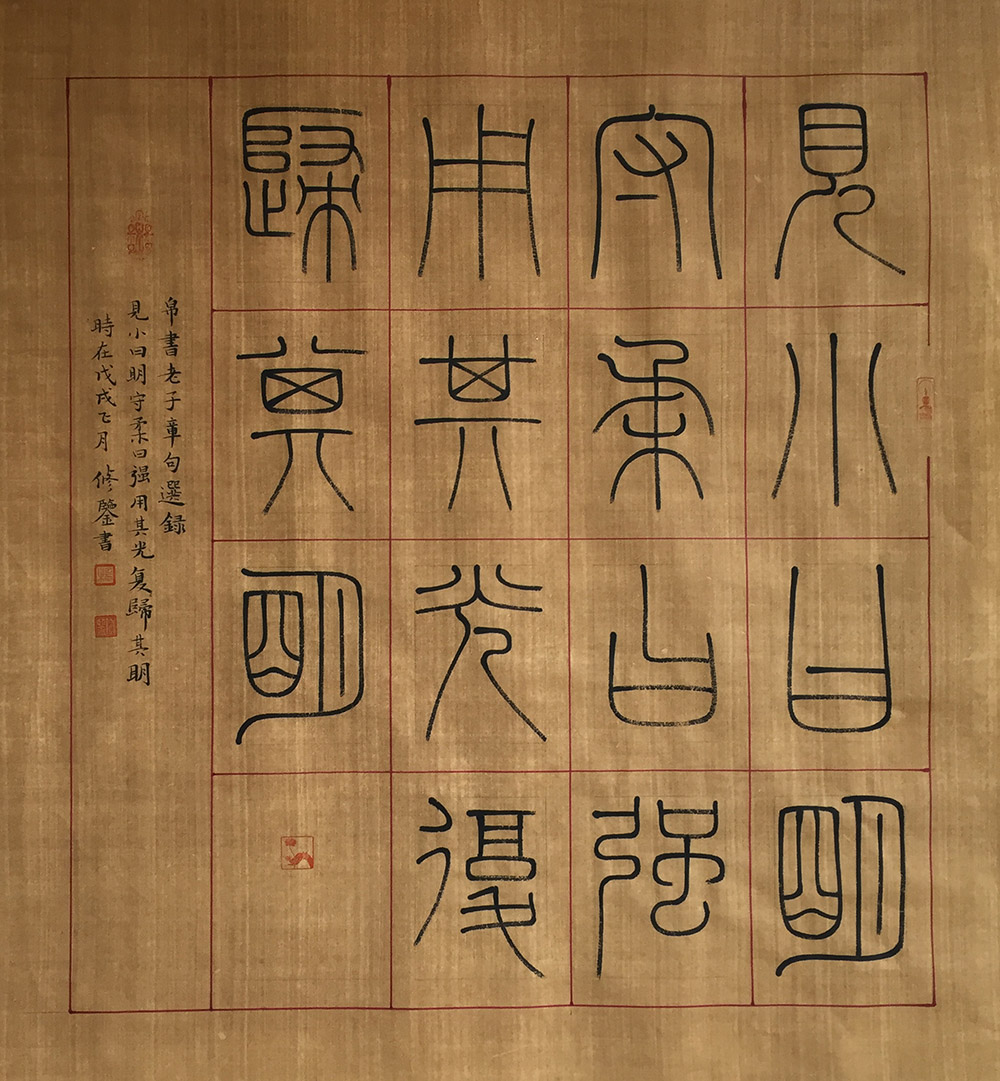 見小曰明
守柔曰强
用其光復
歸其明
帛書老子章句選録
見小曰明守柔曰强用其光复歸其明
時在戊戌正月修鑒書